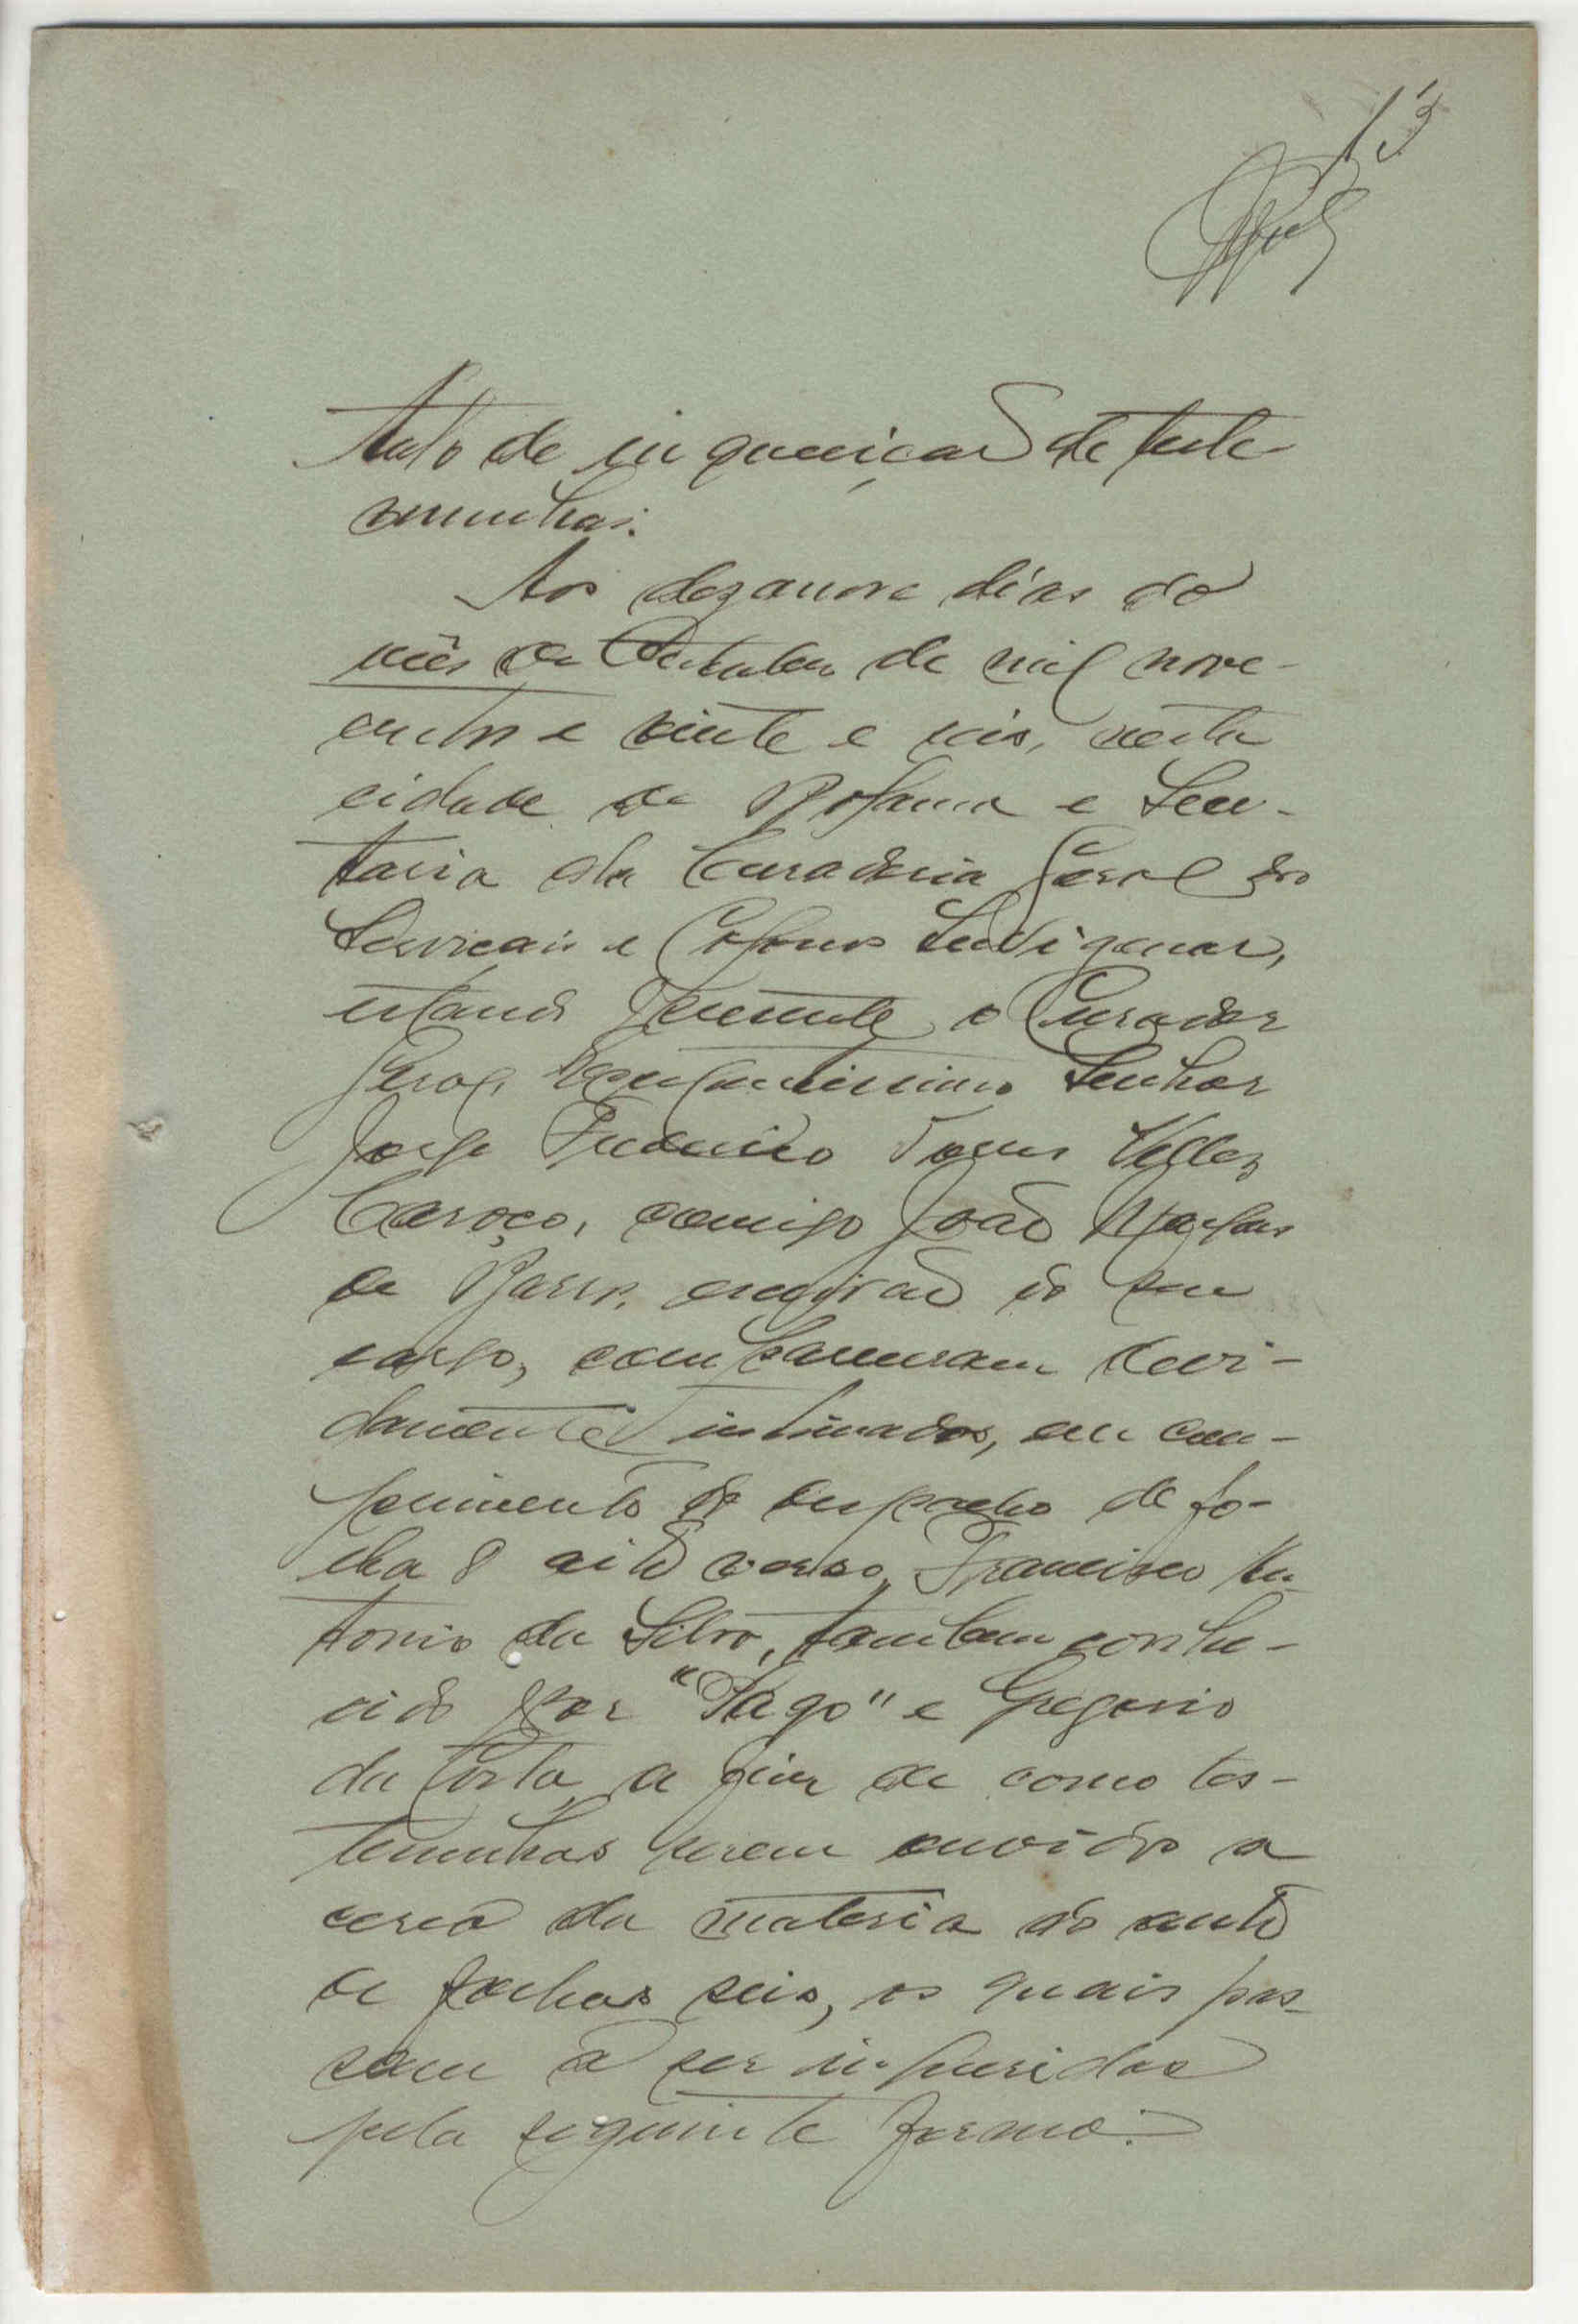 13
Auto de inquirição de teste-
munhas:
Aos dezanove dias do
mês de Outubro de mil nove-
centos e vinte e seis, nesta
cidade de Bolama e Secre-
taria da Curadoria Geral dos
Serviçais e Colonos Indigenas,
estando presente o Curador
Geral, Excelentissimo Senhor
Jorge Frederico Torres Vellez
Caroço, comigo João
de Barros, escrivão do seu
cargo, compareceram devi-
damente intimados, em cum-
primento do despacho de fo-
lha 8 oito verso, Francisco An-
tonio da Silva, tambem conhe-
cido por "Pago" e Gregorio
da Costa, a fim de como tes-
temunhas serem ouvidos a
cerca da materia do auto
de folhas seis, os quais pas-
sam a ser inqueridos
pela seguinte forma: